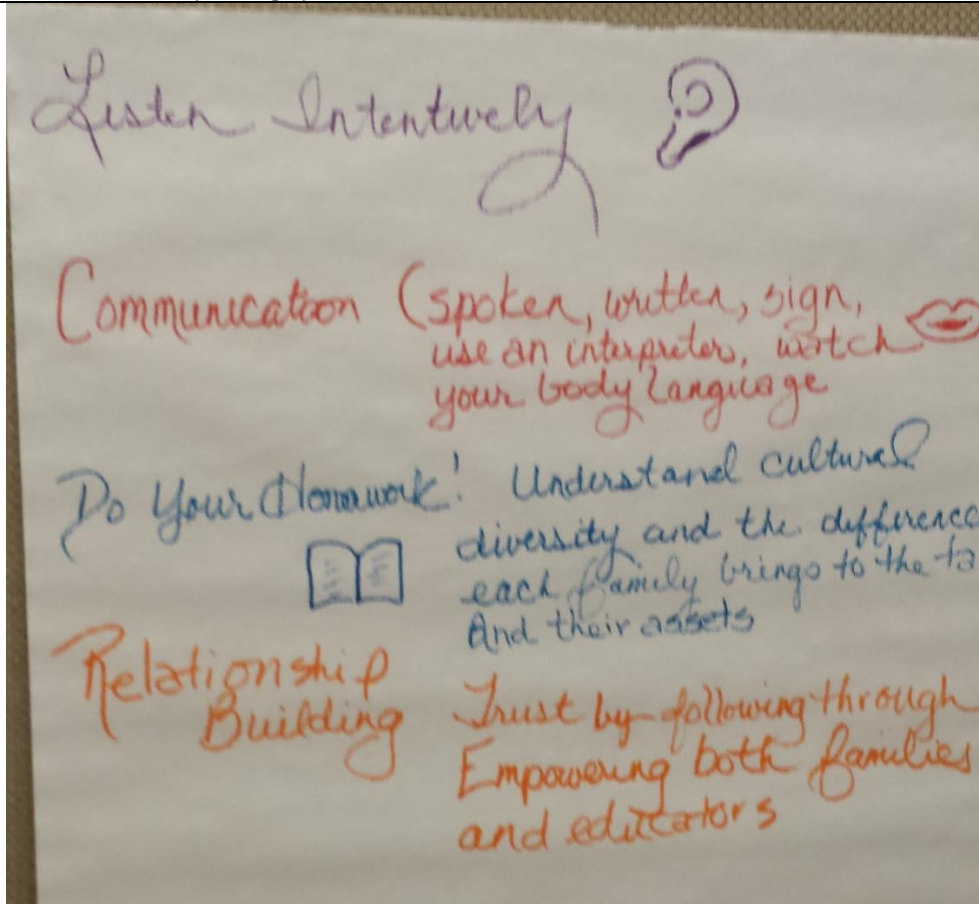 Listen Intentively
Communication (spoken, written, sign,
use an interpreter, watch
your body language
Do Your Homework! Understand cultural
diversity and the difference
each family brings to the
And their assets
Relationship Trust by following through
Building Empowering both families
and educators